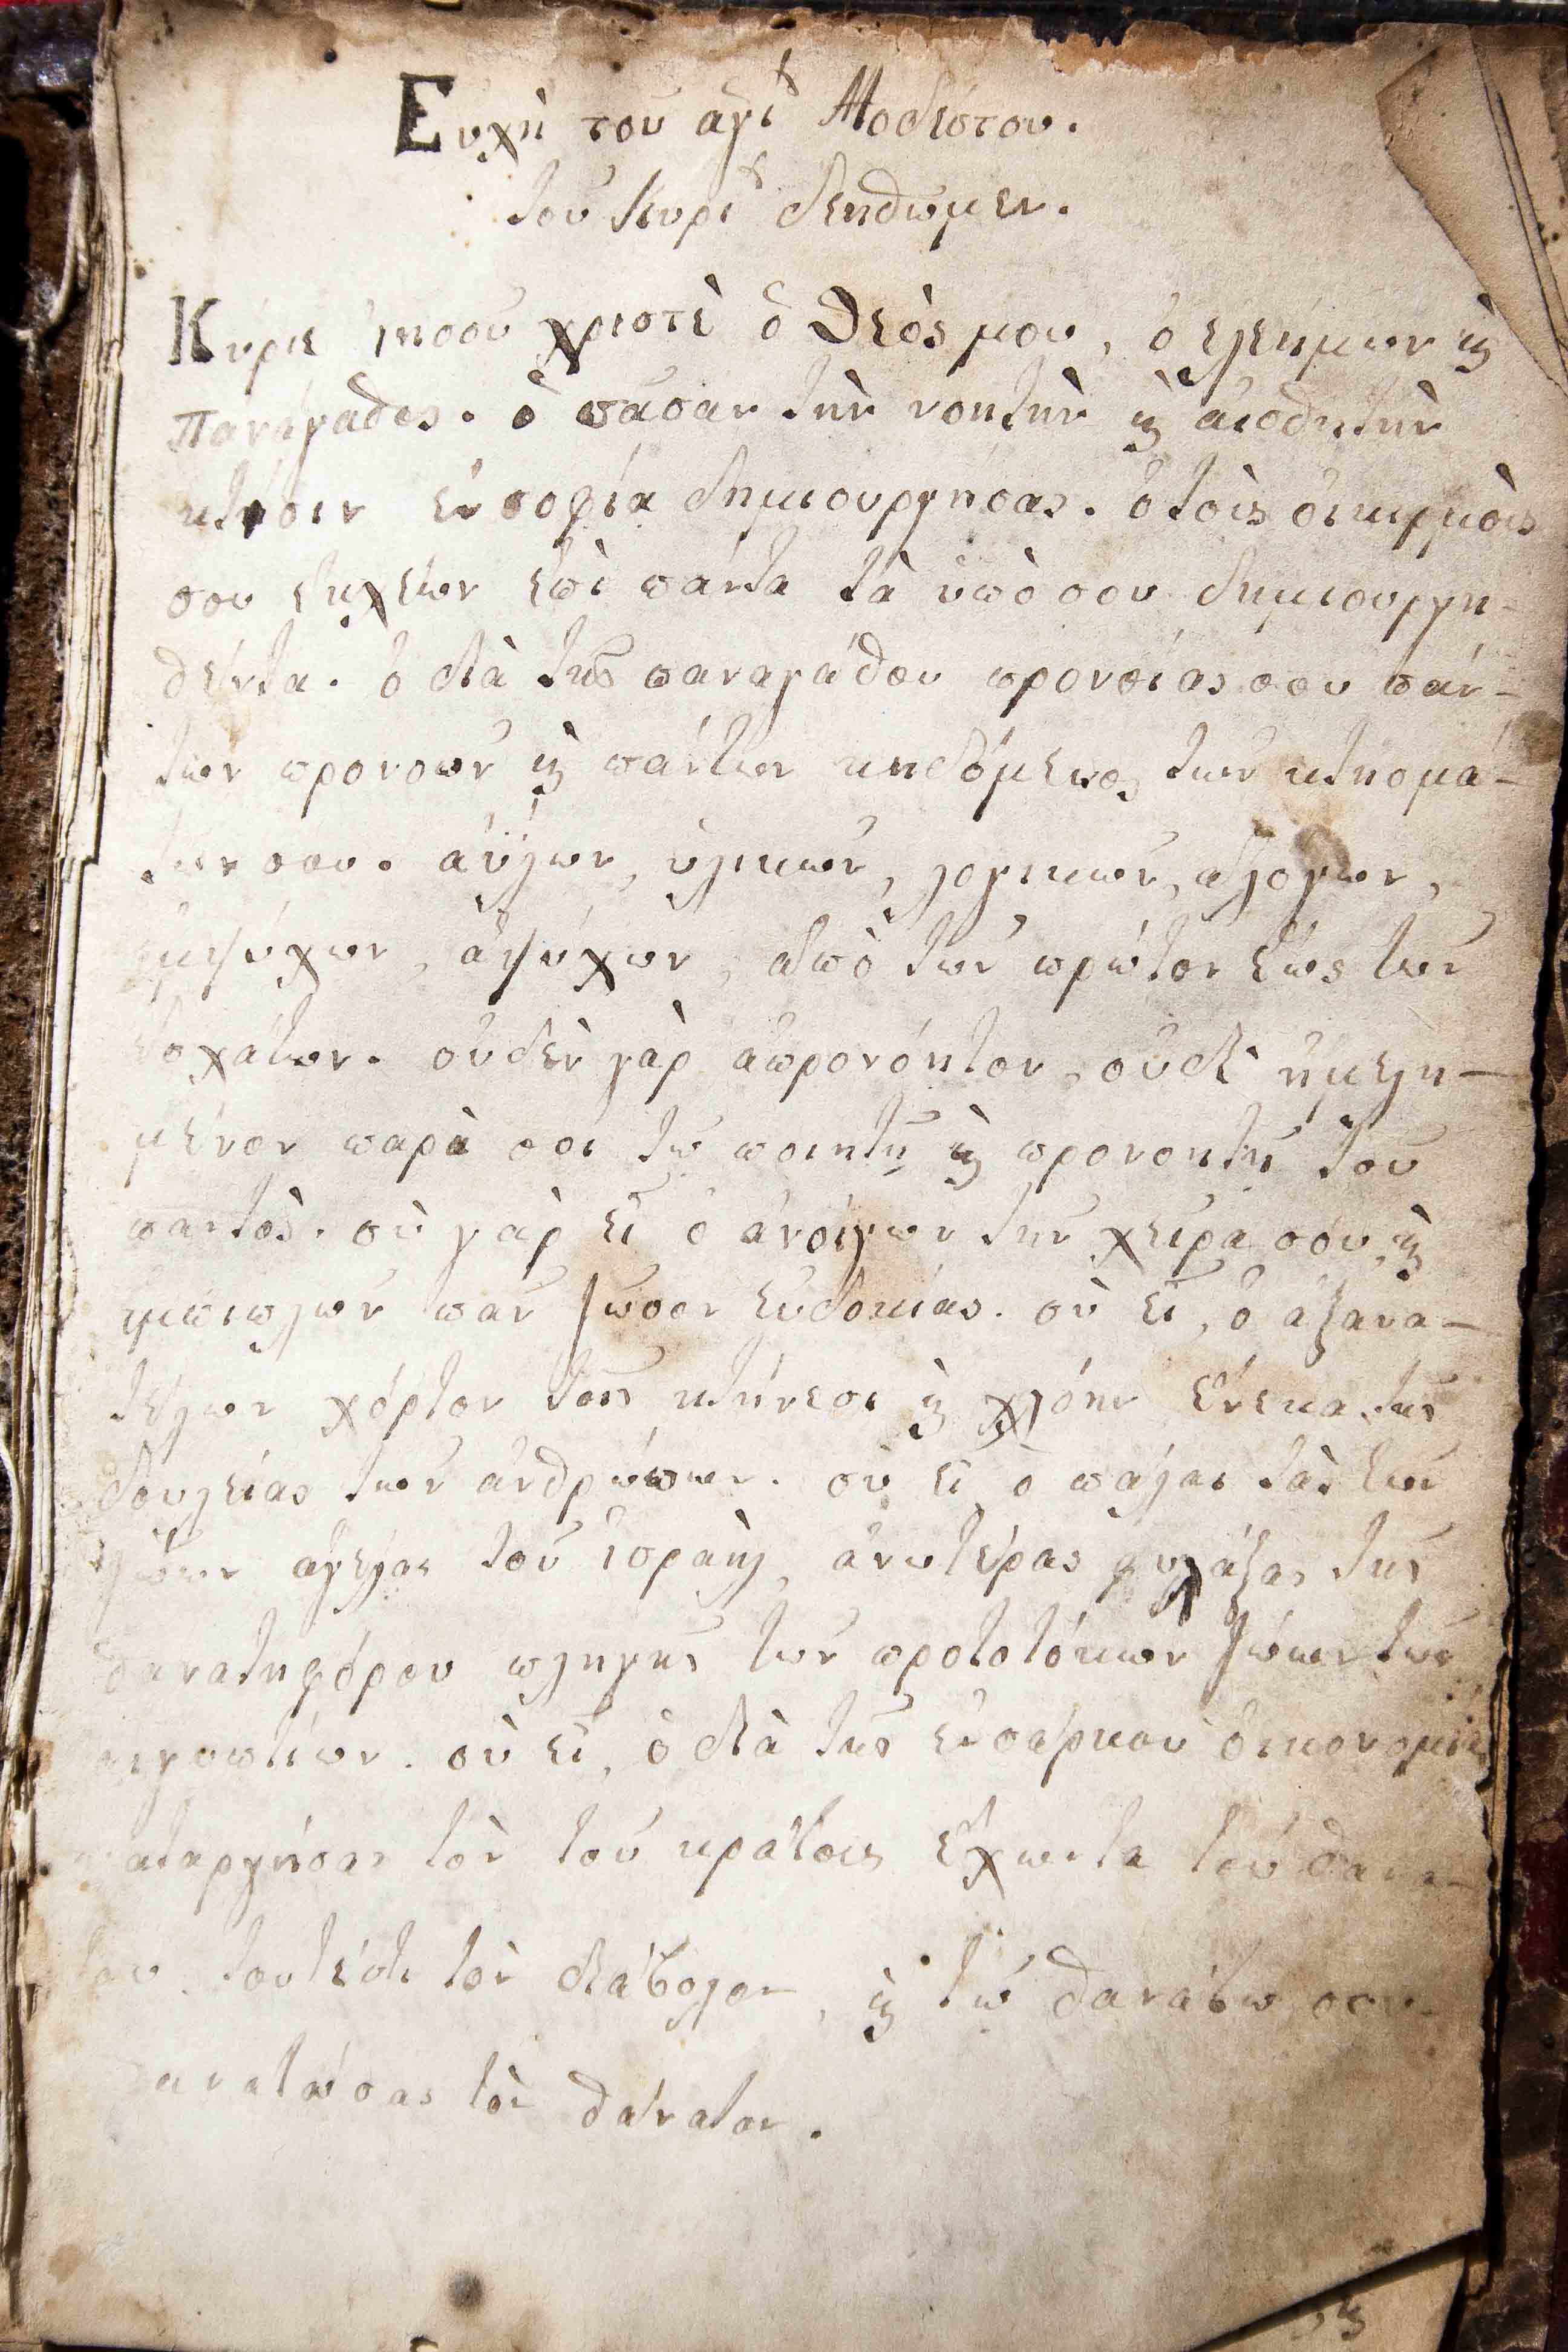 Ευχὴ τοῦ ἁγίȣ Μοδέστου.
τοῦ Κυρίȣ δεηθῶμεν.
Κύριε Ἰησοῦ χριστὲ ὁ Θεός μου, ὁ ἐλεήμων ϗ
πανάγαθος. ὁ πᾶσαν τὴν νοητὴν ϗ ἀισθητὴν
κτήσιν ἐν σοφία δημιουργήσας. ὁ τοὶς ὀικιρμοὶς
σου ἐκχέων ἐπὶ πάντα τὰ ὑπὸ σου δημιουργη-
θέντα. ὁ διὰ τῆς παναγάθου προνοίας σου πάν-
των προνοῶν ϗ πάντων κηδόμενος τῶν κτησμά-
των σου. ἀΰλων, ὑλικῶν, λογικῶν, αλόγων,
εμψύχων, ἀψύχων, απὸ τῶν πρώτον ἕως τῶν
ἐσχάτων. οὐδὲν γὰρ ἀπρονόητον, οὐδὲ ἠμελη-
μένον παρὰ σοι τῶ ποιητῆ ϗ προνοητῆ τοῦ
παντὸς. σὺ γὰρ εἶ ὁ ἀνοίγων την χεῖρα σου, ϗ
εμπιπλῶν πᾶν ζῶοον ἐυδοκίας. σὺ εἶ, ὁ ἀξανα-
τέλων χόρτον τοῖς κτήνεσι ϗ χλόην ἕνεκα της
δουλείας τῶν ἀνθρώπων. σὺ εἶ ὁ πάλαι τὰς τῶν
ζώων αγέλας τοῦ ἰσραὴλ ἀνωτέρας φυλάξας της
θανατηφόρου πληγῆς τῶν προτοτόκων ζώων των
αιγυπτίων. σὺ εἶ, ὁ διὰ τῆς ἐνσάρκου ὀικονομίας
καταργήσας τὸν τοῦ κράτοις ἔχωντα τοῦ θανα-
του τουτέστι τὸν διάβολον, ϗ τῶ θανάτω σου
θανατώσας τὸν θάνατον.